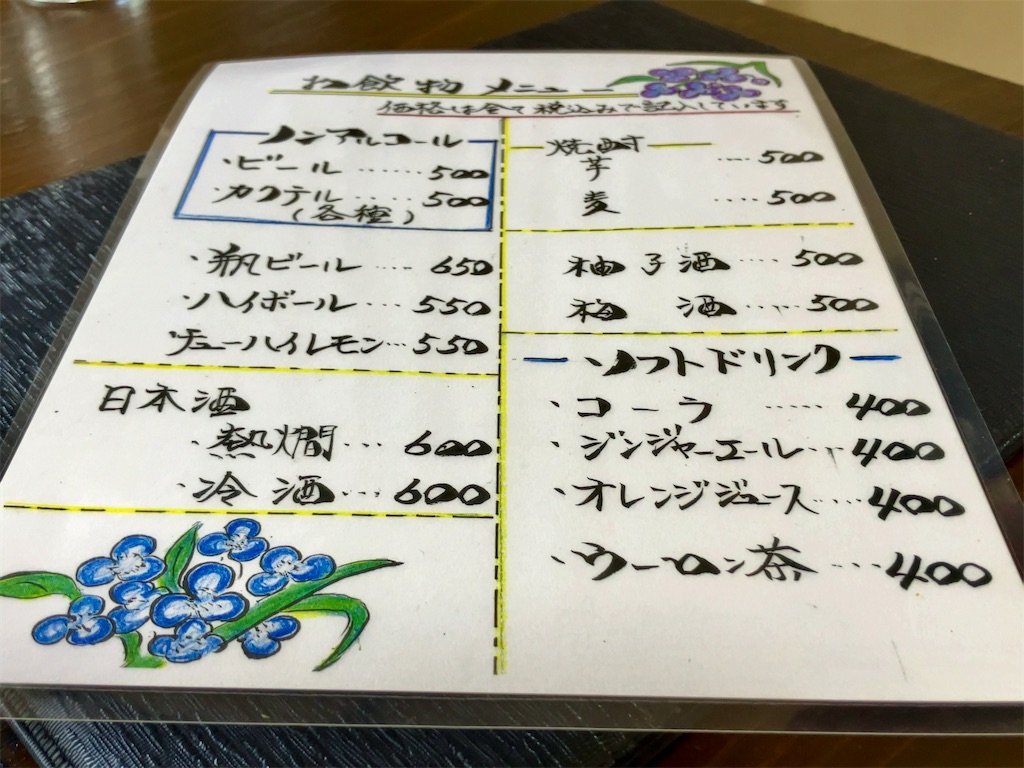 お飲物メニュー
価格は全て税込みで記入しています
ノンアルコール
・ビール …… 500
・カクテル … 500
(各種)
・瓶ビール …… 650
・ハイボール … 550
・チューハイレモン … 550
日本酒
・熱燗 … 600
・冷酒 … 600
焼酎
芋 …… 500
麦 …… 500
柚子酒 … 500
梅酒 …… 500
ソフトドリンク
・コーラ …… 400
・ジンジャーエール … 400
・オレンジジュース …… 400
・ウーロン茶 …… 400